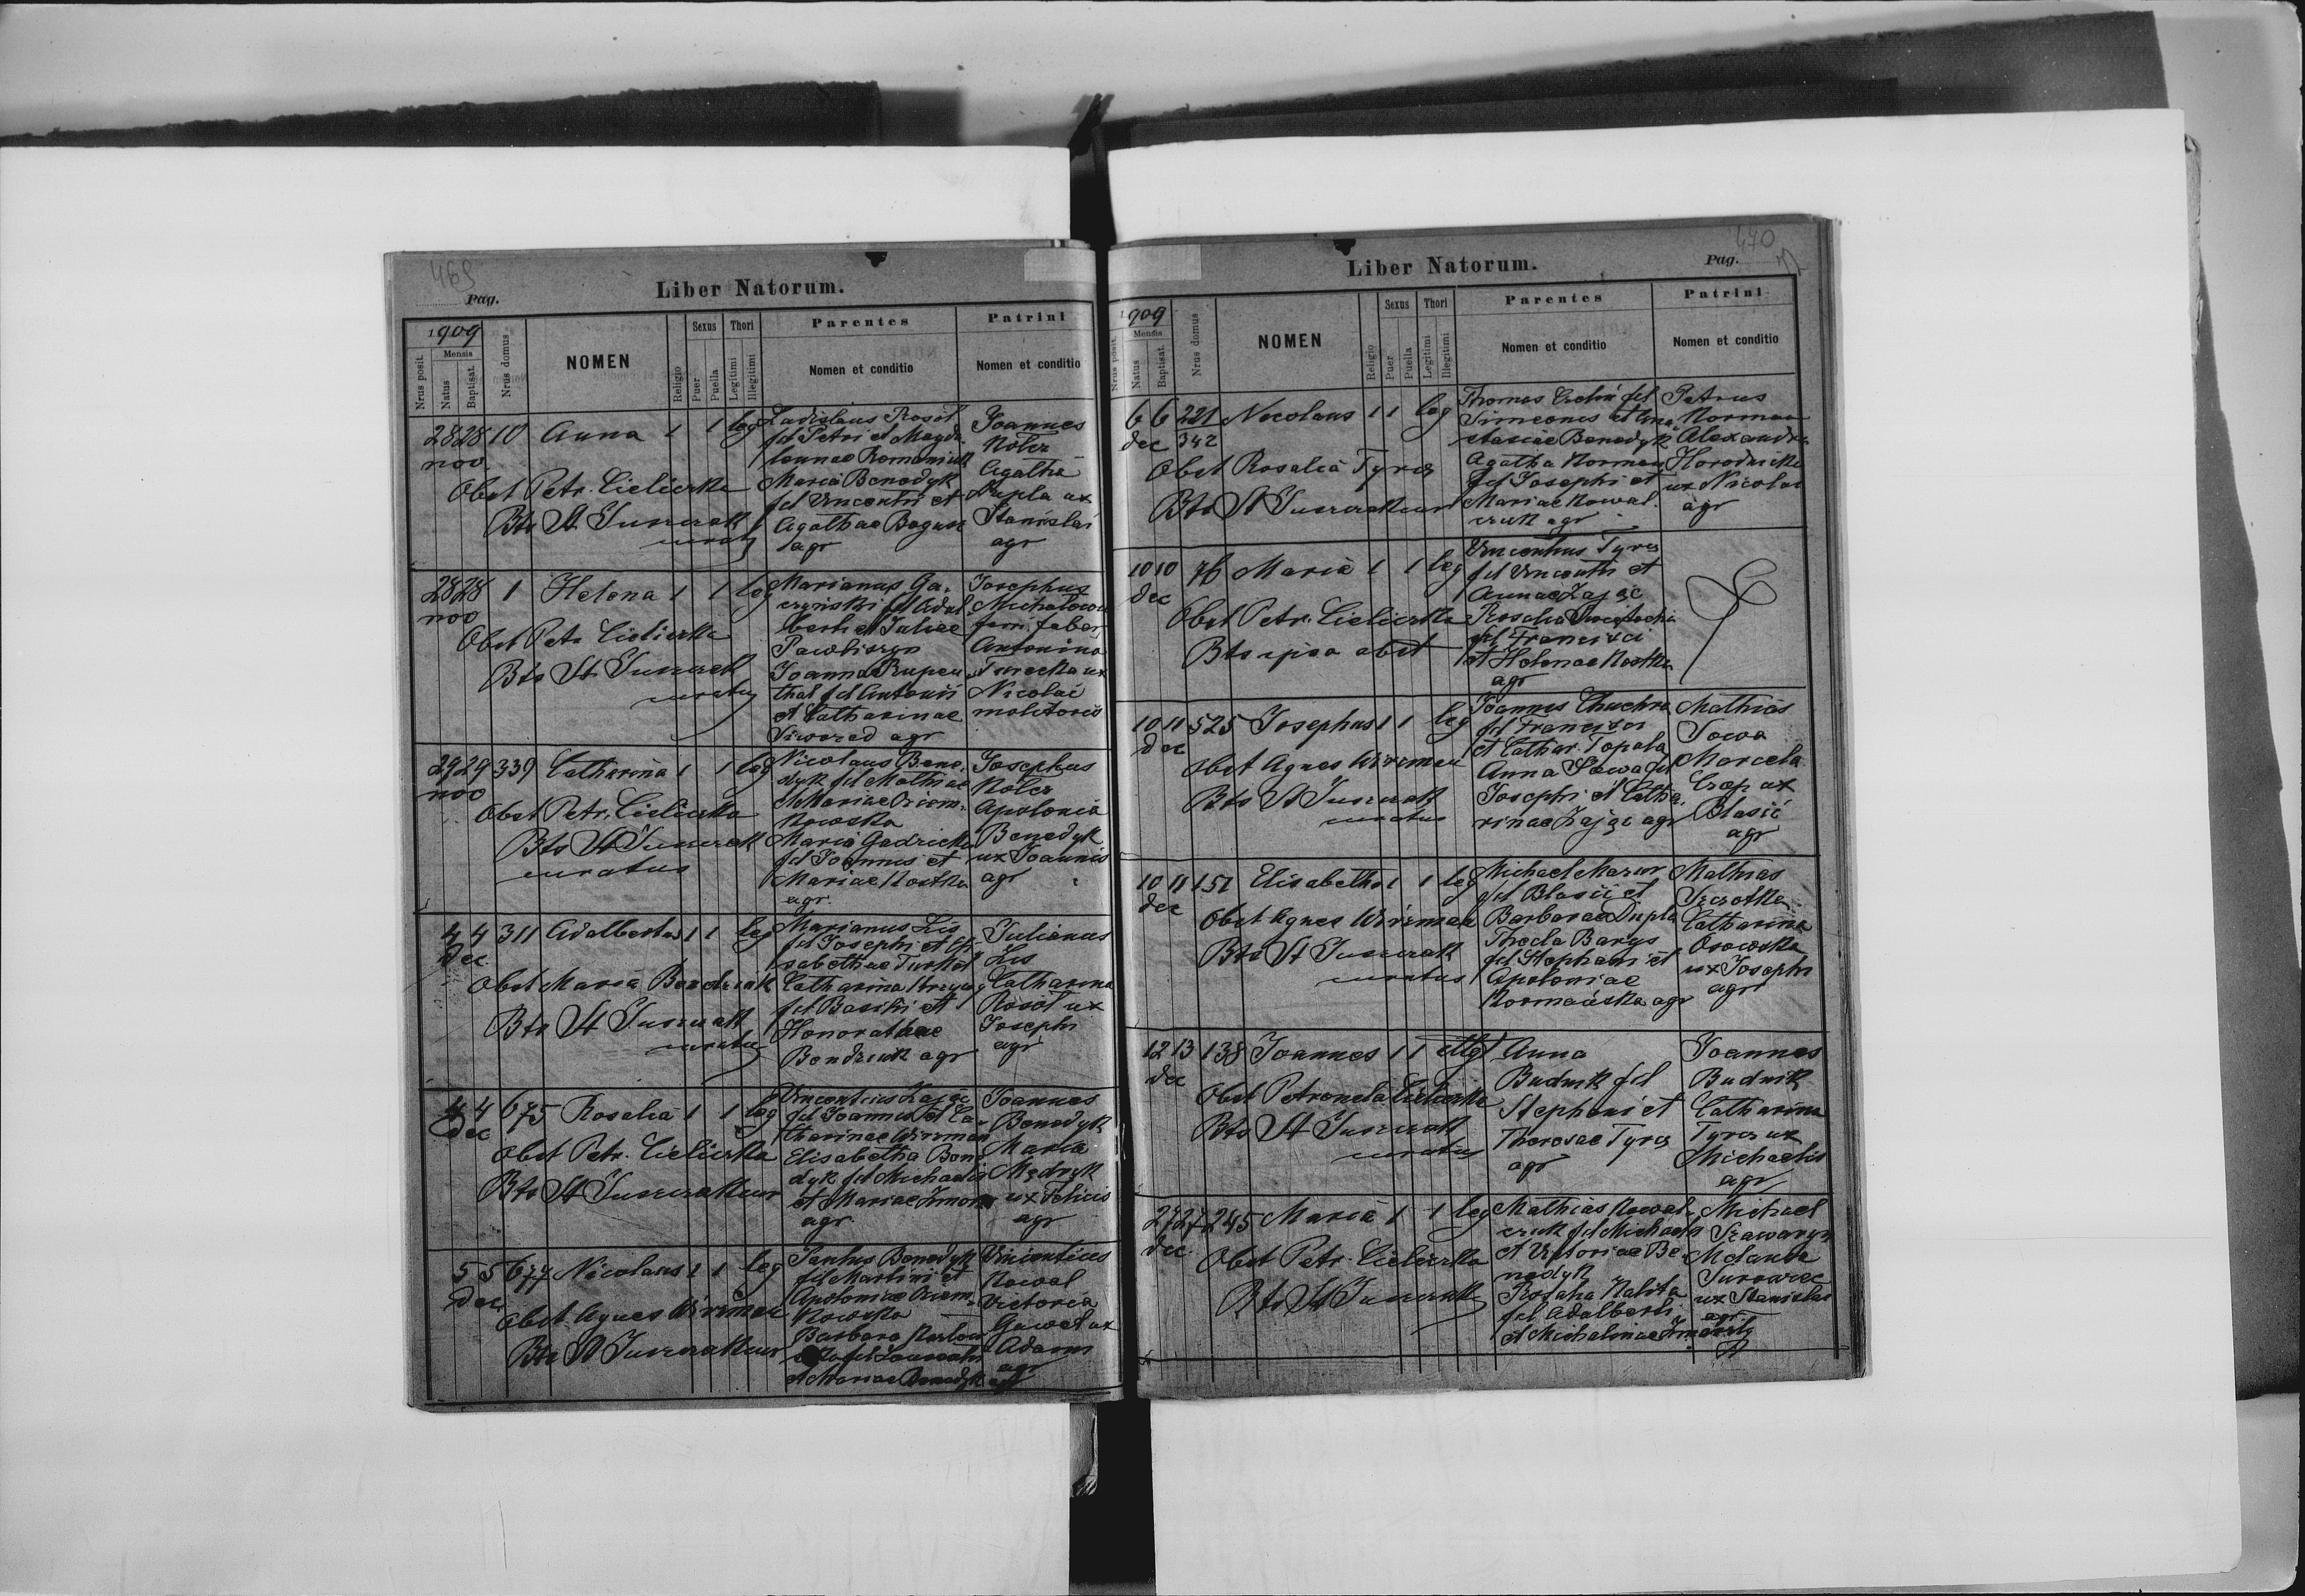 469
Pag.
Liber Natorum.
1909
Nrus posit.
Mensis
Natus
Baptisat.
Nrus domus
NOMEN
Religio
Sexus
Puer
Puella
Thori
Legitimi
Illegitimi
Parentes
Nomen et conditio
Patrini
Nomen et conditio
28 28 10 Anna 1 1 leg
nov
Obst Petr. Cieliczka
Bts St
Ladislaus Rosół
fil Petri et Magda
lennae Romaniuk
Maria Benedyk
fil Vincentii et
Agathae Bogusz
agr
Joannes
Koler
Agatha
Dupla ux
Stanislai
agr
28 28 1 Helena 1 1 leg
nov
Obst Petr Cieliczka
Bts St
curatus
Marianus Ga-
czyński fil Adal
berti et Juliae
Pawliszyn
Joanna Rupen
thal fil Antonii
et Catharinae
agr
Josephus
ferri faber
Antonina
Turecka ux
Nicolai
molitoris
29 29 339 Catharina 1 1 leg
nov
Obst Petr. Cieliczka
Bts St
curatus
Nicolaus Bene
dyk fil Mathiae
et Mariae Oziem-
kowska
Maria
fil Joannis et
Mariae Kostka
agr.
Josephus
Koler
Apolonia
Benedyk
ux Joannis
agr
4 4 311 Adalbertus 1 1 leg
Dec
Obst Maria
Bts St
curatus
Marianus Lis
fil Josephi et Eli
sabethae
Catharina
fil Basilii et
Honorathae
agr
Julianus
Lis
Catharina
Rosół ux
Josephi
agr
4 4 675 Rosalia 1 1 leg
Dec
Obst Petr. Cieliczka
Bts St
Vincentius Zając
fil Joannis et Ca
tharinae Wirzman
Elisabetha Bene
dyk fil Michaelis
et Mariae
agr.
Joannes
Benedyk
Maria
ux Felicis
agr
5 5 677 Nicolaus 1 1 leg
Dec
Obst Agnes Wirzman
Bts St
Benedyk
fil Martini et
Apoloniae Oziem-
kowska
Barbara
et Mariae Benedyk agr
Vincentius
Kowal
Victoria
Gaweł ux
Adami
agr
470
Pag.
Liber Natorum.
1909
Nrus posit.
Mensis
Natus
Baptisat.
Nrus domus
NOMEN
Religio
Sexus
Puer
Puella
Thori
Legitimi
Illegitimi
Parentes
Nomen et conditio
Patrini
Nomen et conditio
6 6 221 Nicolaus 1 1 leg
dec 342
Obst Rosalia Tyrcz
Bts St
Thomas fil
Simeonis et Ana
stasiae Benedyk
Agatha Korman
fil Josephi et
Mariae Kowal
czuk agr
Petrus
Korman
Alexandra
Horodnicka
ux Nicolai
agr
10 10 76 Maria 1 1 leg
dec
Obst Petr. Cieliczka
Bts ipsa obst
Vincentius Tyrcz
fil Vincentii et
Annae Zając
Rosalia
fil Francisci
et Helenae Kostka
agr
10 11 525 Josephus 1 1 leg
dec
Obst Agnes Wirzman
Bts St
curatus
Joannes Chuchra
fil Francisci
et Cathar. Topola
Anna Sowa fil
Josephi et Catha
rinae Zając agr
Mathias
Sowa
Marcela
Czop ux
Blasii
agr
10 11 151 Elisabetha 1 1 leg
dec
Obst Agnes Wirzman
Bts St
curatus
Michael Mazur
fil Blasii et
Barbarae Dupla
Thecla Barys
fil Stephani et
Apoloniae
Kormańska agr
Mathias
Szczotka
Catharina
Osowska
ux Josephi
agr
12 13 138 Joannes 1 1 illgt
dec
Obst Petronela Cieliczka
Bts St
curatus
Anna
Budnik fil
Stephani et
Theresae Tyrcz
agr
Joannes
Budnik
Catharina
Tyrcz ux
Michaelis
agr
27 27 245 Maria 1 1 leg
dec.
Obst Petr. Cieliczka
Bts St
Mathias Kowal
czuk fil Michaelis
et Victoriae Be-
nedyk
Rosalia Kalita
fil Adalberti
et Michalinae
Michael
Melania
ux Stanislai
agr